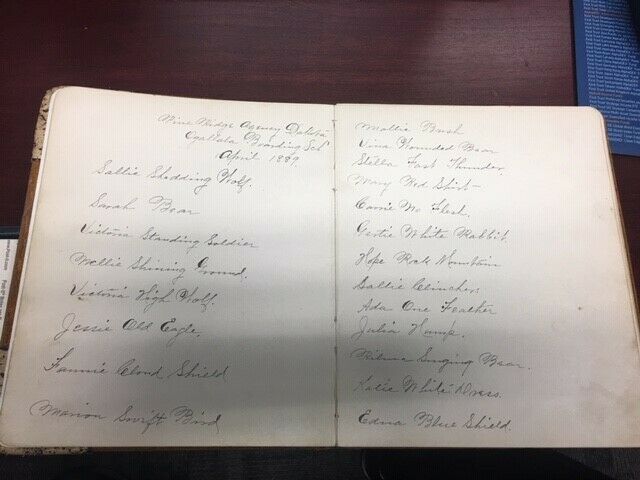 Pine Ridge Agency Dakota
Ogallala Boarding Sch
April 1889.
Sallie Shedding Wolf.
Sarah Bear
Victoria Standing Soldier
Nellie Shining Ground.
Victoria High Wolf.
Jessie Old Eagle.
Fannie Cloud Shield
Marion Swift Bird
Mollie Bush
Vina Wounded Bear
Stella Fast Thunder
Mary Red Shirt
Carrie No Flesh.
Gertie White Rabbit.
Hope Rock Mountain
Sallie Clincher
Ada One Feather
Julia Hump.
Singing Bear.
Katie White Dress.
Edna Blue Shield.